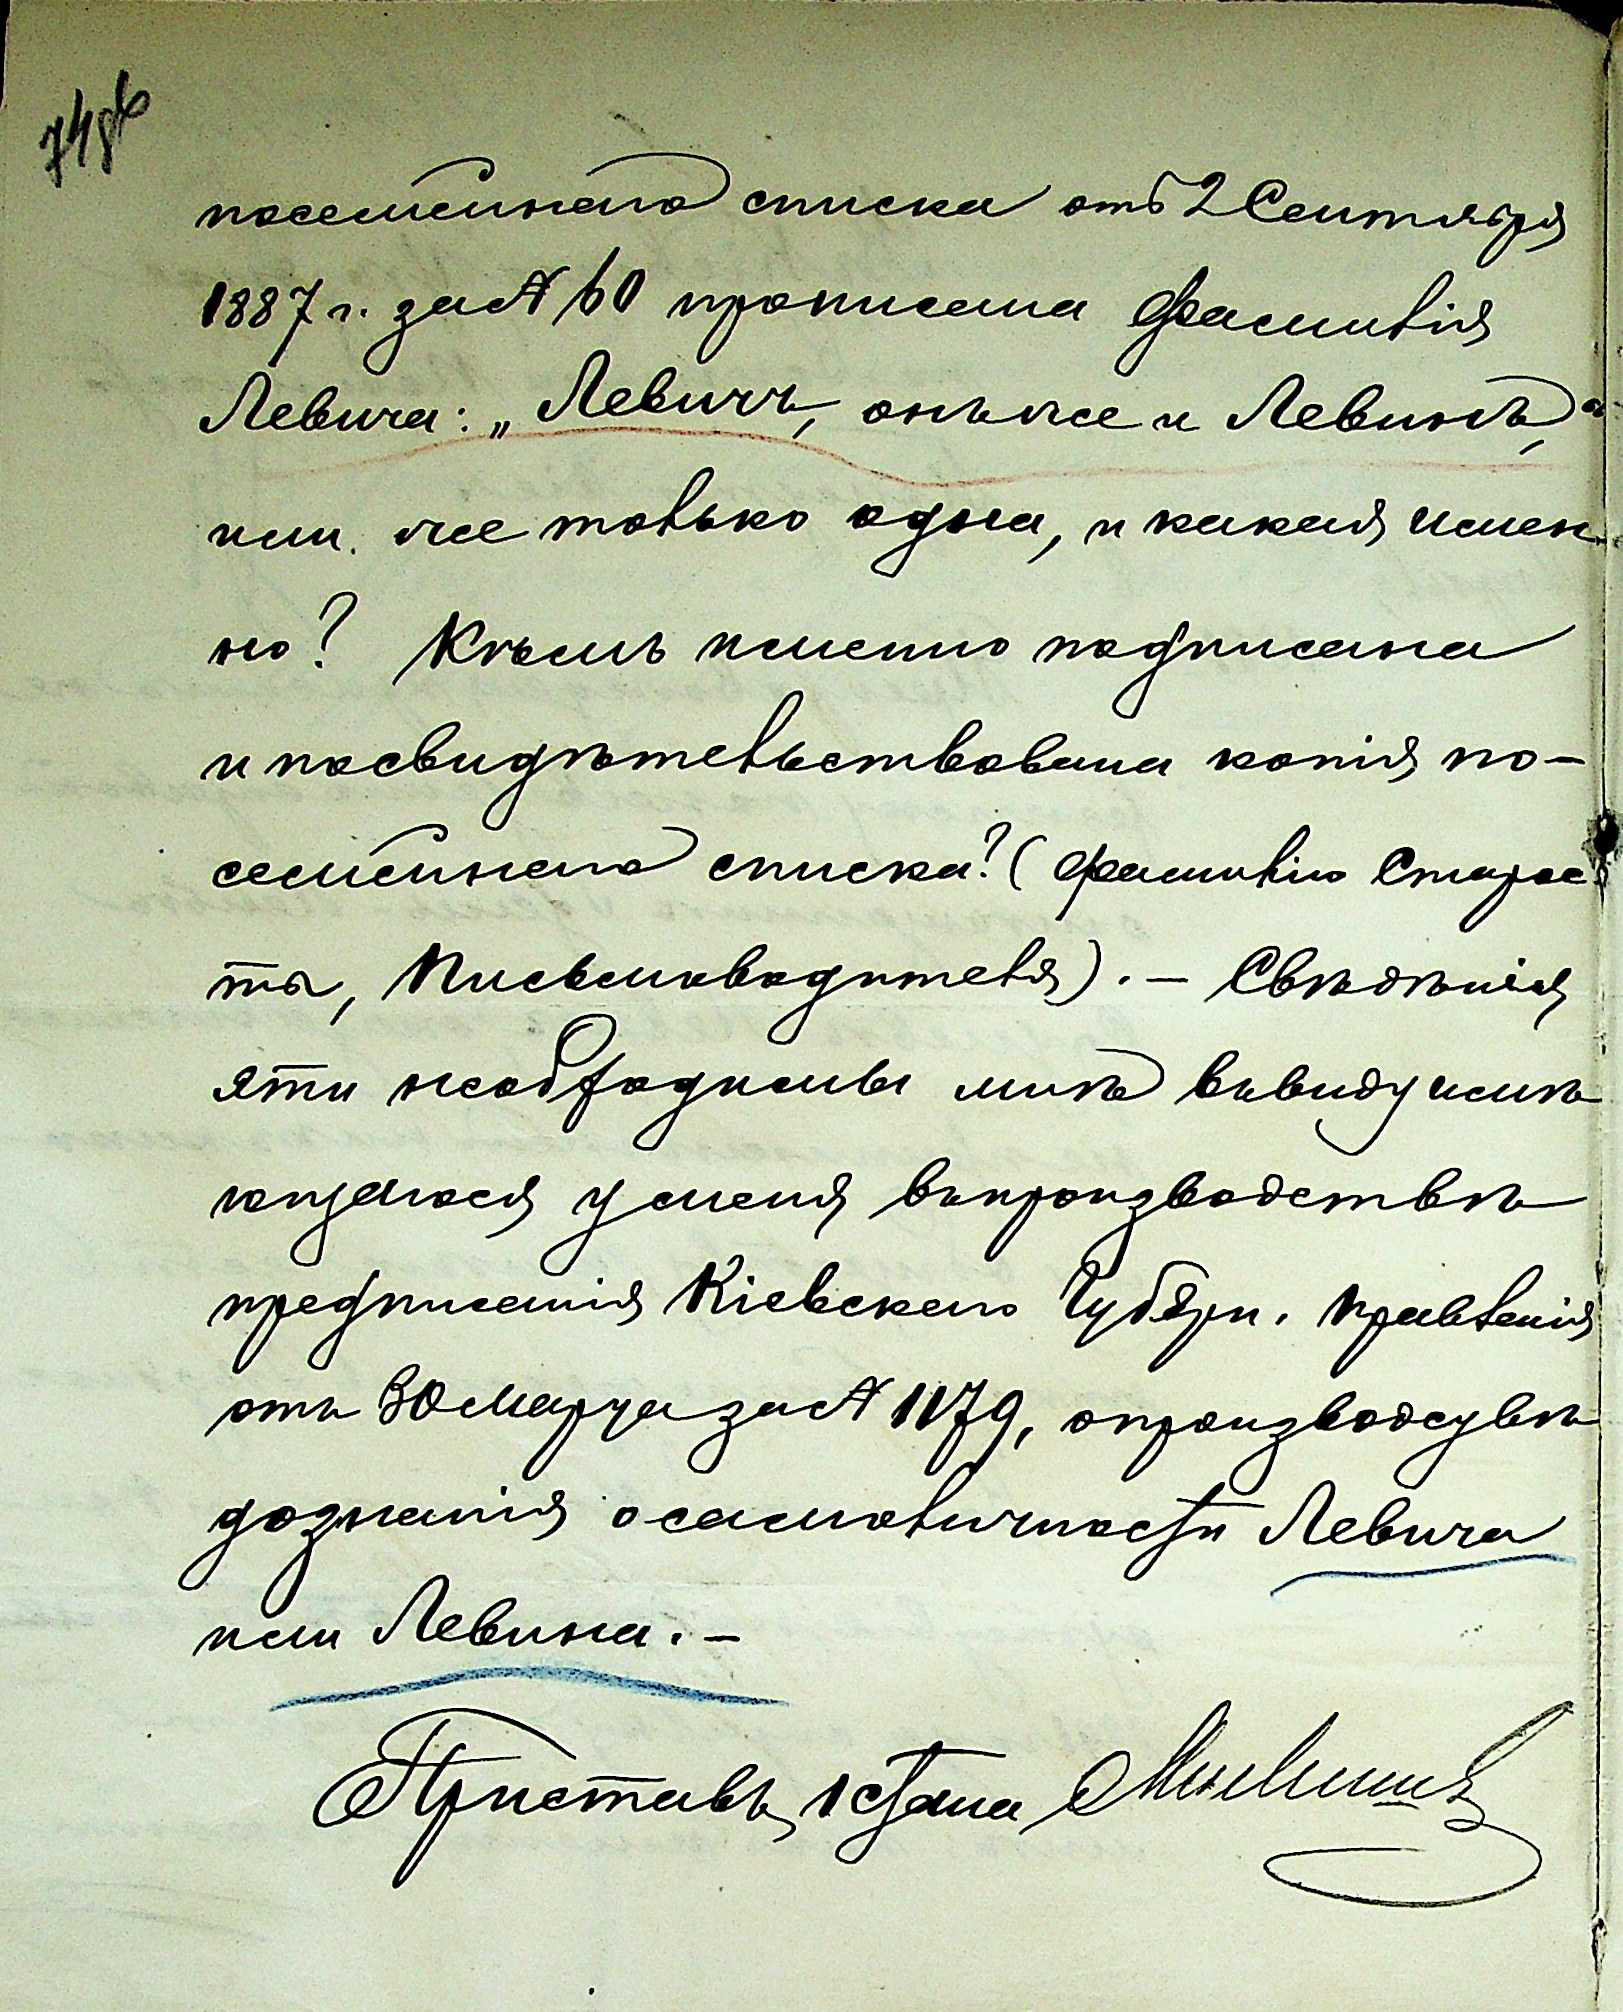 74об
посемейнаго списка отъ 2 Сентября
1887 г. за № 60 прописана фамилія
Левича: „Левичъ, онъ же и Левинъ,“
или же только одна, и какая имен
но? Кѣмъ именно подписана
и посвидѣтельствована копія по-
семейнаго списка? (фамилію Старос
ты, Письмоводителя). – Свѣдѣнія
эти необходимы мнѣ ввиду имѣ
ющагося у меня въ производствѣ
предписанія Кіевскаго Губерн. Правленія
отъ 30 Марта за № 1179, о производствѣ
дознанія о самоличности Левича
или Левина. –
Приставъ 1 стана